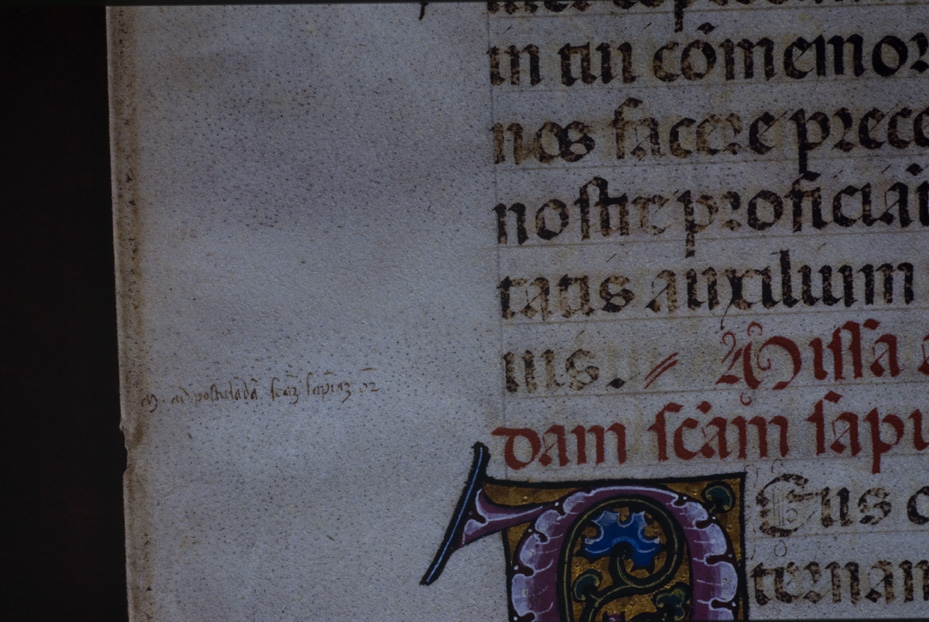 in tui cōmemor
nos facere prece
nostre proficiāt
tatis auxilium
iiis. Missa
dam scām sapi
ad postuladā scāȝ sapiȝ
Eus
ternam